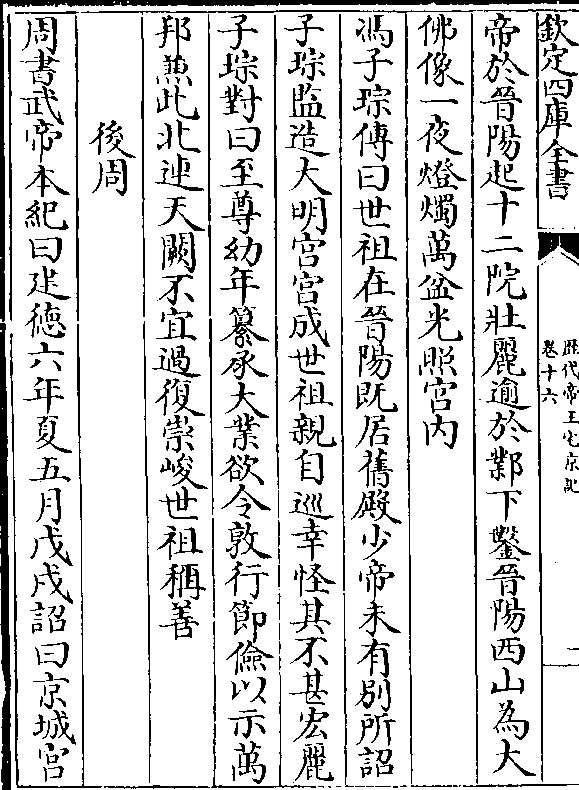 欽定四庫全書
歴代帝王宅京記
卷十六
一
帝於晉陽起十二院壯麗逾於鄴下鑿晉陽西山為大
佛像一夜燈燭萬盆光照宫内
馮子琮傳曰世祖在晉陽既居舊殿少帝未有别所詔
子琮監造大明宫宫成世祖親自巡幸怪其不甚宏麗
子琮對曰至尊幼年纂承大業欲令敦行節儉以示萬
邦兼此北連天闕不宜過復崇峻世祖稱善
後周
周書武帝本紀曰建德六年夏五月戊戌詔曰京城宫